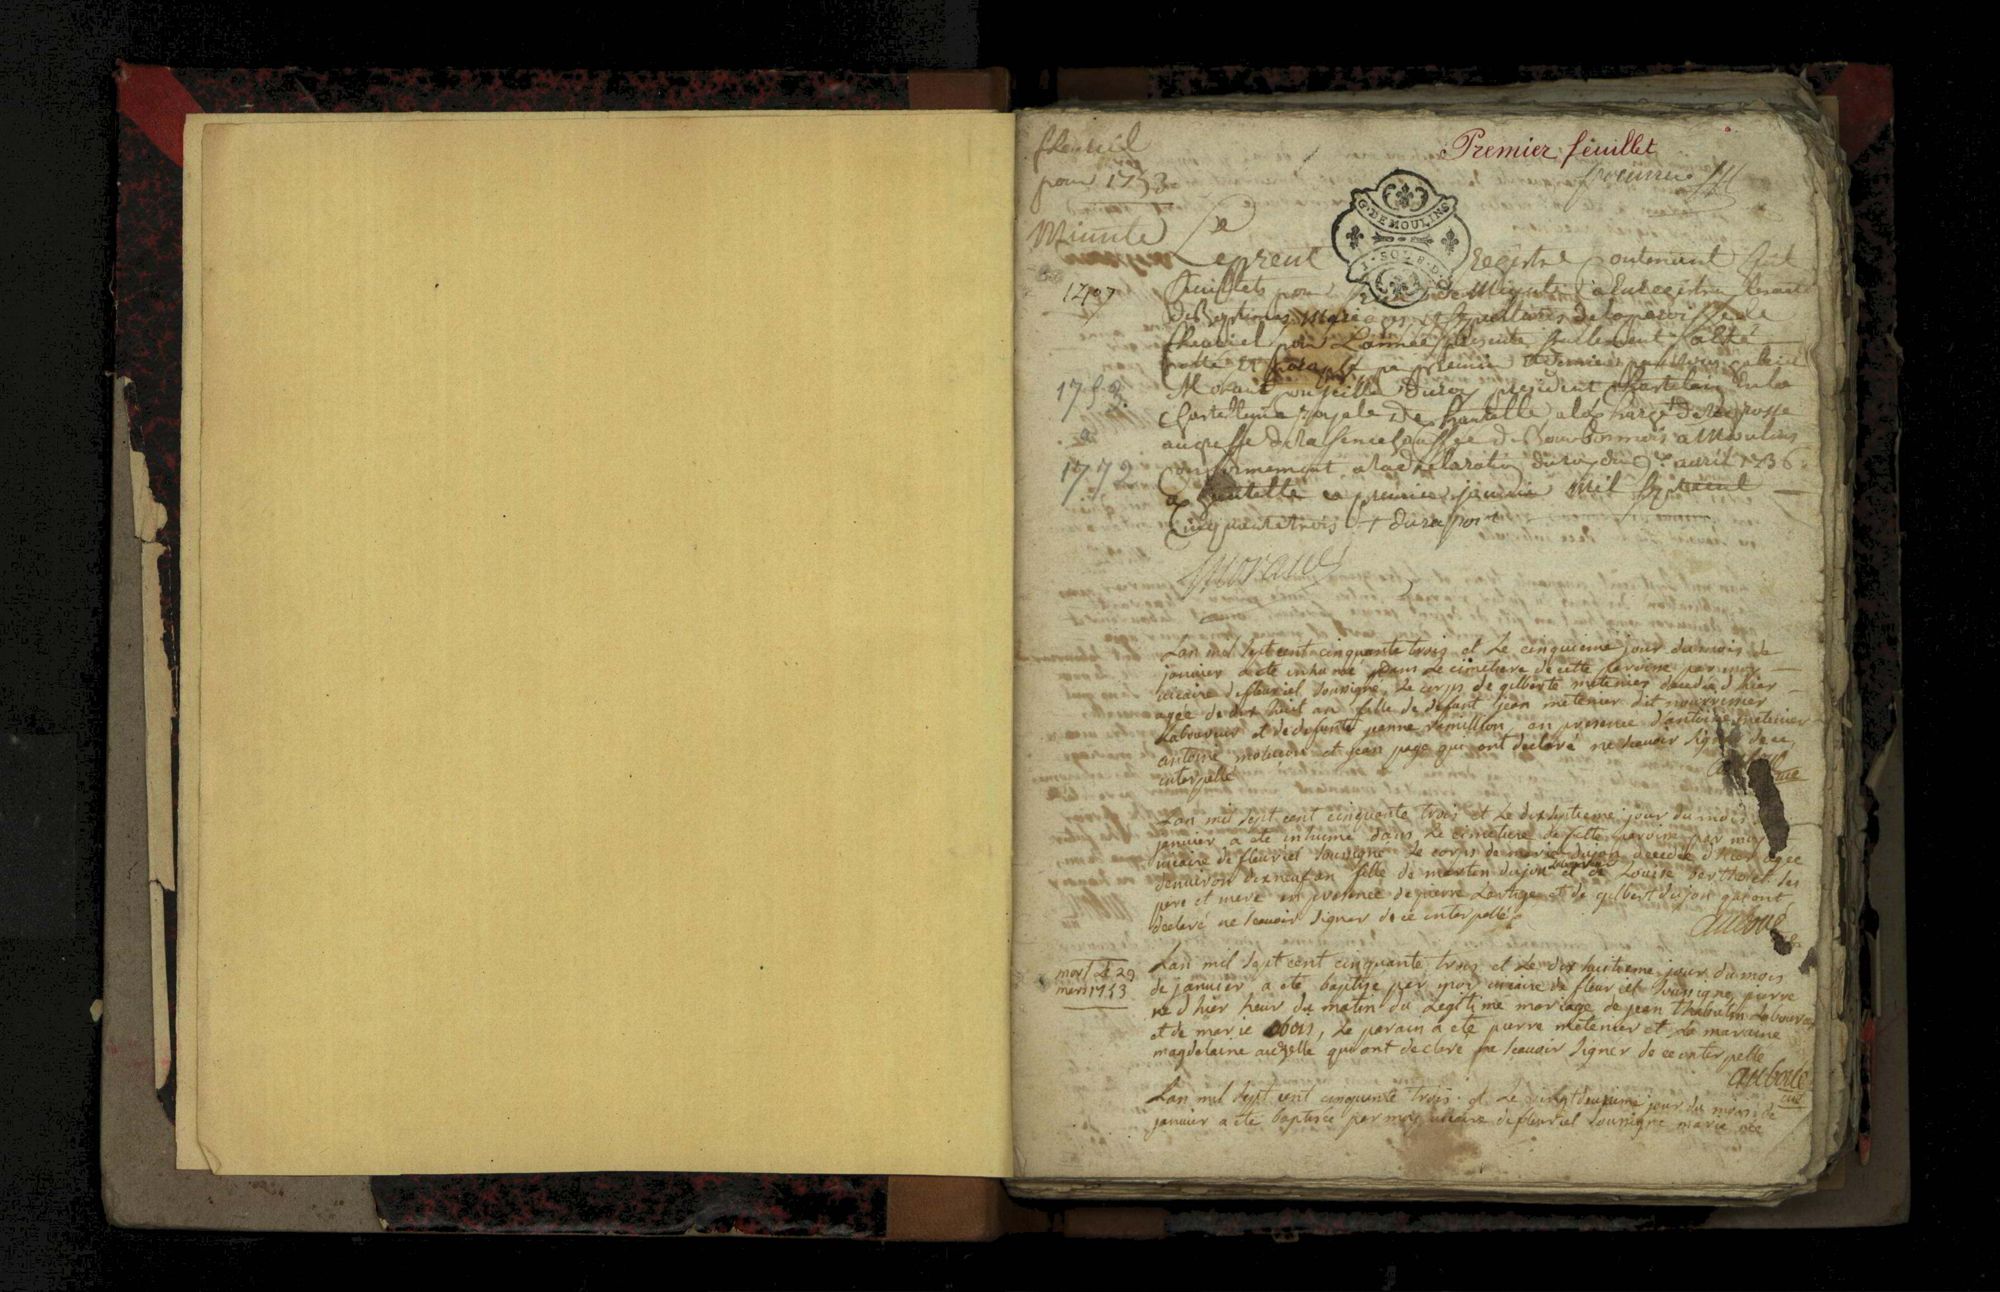 fleuriel
pour 1753
Minute
1753
1772
Premier feuillet
premier
G. DE MOULINS
Le present registre contenant huit
feuillets pour de Minute a Enregistrer les actes
de Baptemes Mariages et sepultures de la paroisse de
fleuriel pour L'année presente
cotté et premier et dernier par nous
conseiller du roy president Chastelain de la
Chastellenie royale de Chantelle a la charge de la grosse
au greffe de la senechaussee de Bourbonnois a Moulins
Conformement a la declaration du roy du 9e avril 1736
a Chantelle ce premier janvier Mil sept cent
Cinquante trois
Lan mil sept cent cinquante trois et Le cinquieme jour du mois de
janvier a ete inhumé dans Le cimetiere de cette paroisse par moy
vicaire de fleuriel soussigné, Le corps de gilberte metenier decedée d'hier
agée de dix huit an fille de defunt jean metenier dit nourrinier
Laboureur et de defunte jeanne remillon en presence d'antoine metenier
antoine et jean page qui ont declaré ne scavoir signer de ce
interpellé
Lan mil sept cent cinquante trois et Le dix septieme jour du mois
janvier a ete inhumé dans Le cimetiere de cette paroisse par moy
vicaire de fleuriel soussigné Le corps de marie dujon decedée d'hier agée
denviron dix neuf an fille de martin dujon laboureur et de Louise bertholet ses
pere et mere en presence de pierre Lartige et de gilbert dujon qui ont
declaré ne scavoir signer de ce interpellés
auboué
mort Le 29
mars 1753
Lan mil sept cent cinquante trois et Le dix huitieme jour du mois
de janvier a ete baptisé par moy vicaire de fleuriel soussigné pierre
né d'hier heur du matin du Legitime mariage de jean thabutin Laboureur
et de marie obois, Le parain a ete pierre metenier et La maraine
magdelaine auzelle qui ont declaré ne scavoir signer de ce interpellé
auboué
vic
Lan mil sept cent cinquante trois et Le vingt deuxieme jour du mois de
janvier a ete baptisée par moy vicaire de fleuriel soussigné marie née